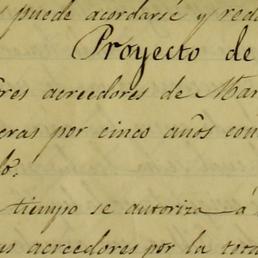 puede acordarse y red
Proyecto de
res acreedores de Mar
eras por cinco años con
lo.
tiempo se autoriza á
us acreedores por la tota